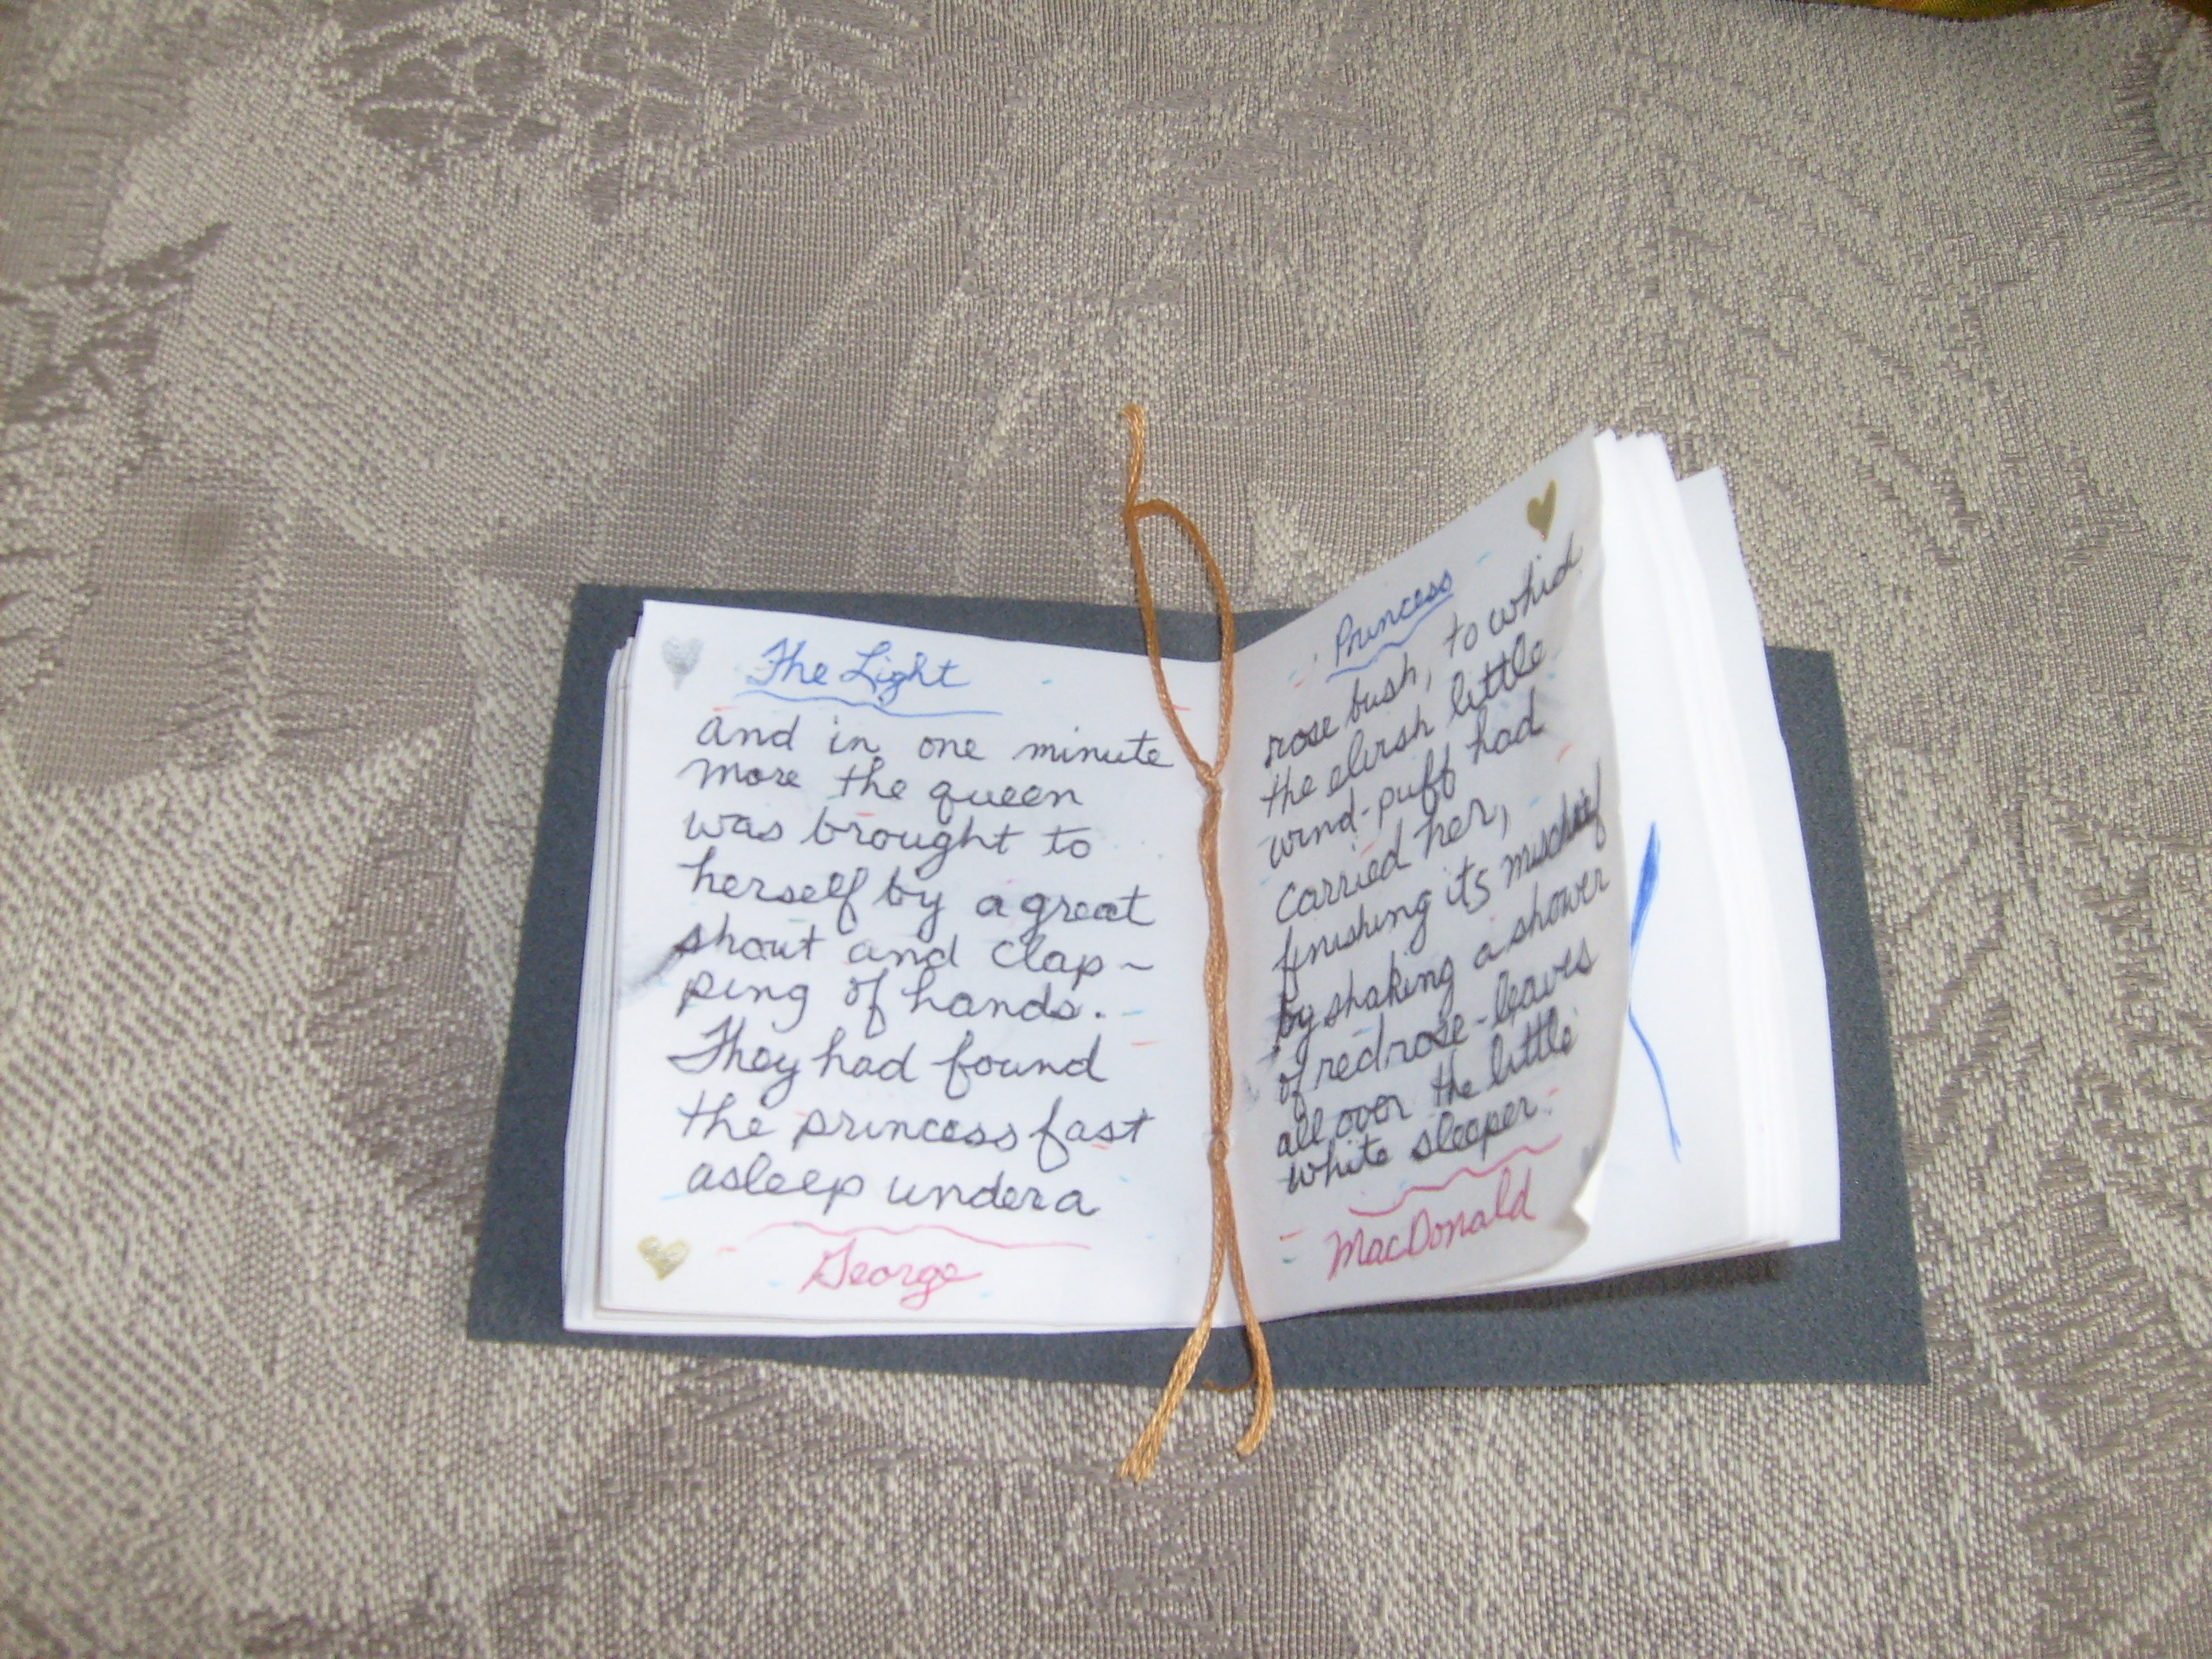 The Light
and in one minute
more the queen
was brought to
herself by a great
shout and clap-
ping of hands.
They had found
the princess fast
asleep under a
George
Princess
rose bush, to which
the elvish little
wind-puff had
carried her,
finishing its mischief
by shaking a shower
of red rose-leaves
all over the little
white sleeper.
MacDonald